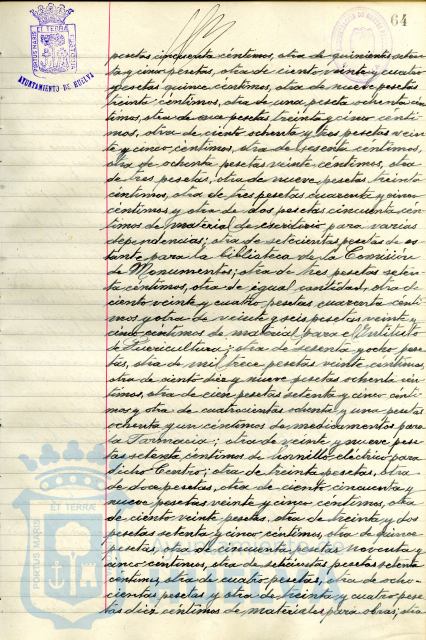 64
PORTUS MARIS ET TERRÆ CUSTODIA
AYUNTAMIENTO DE HUELVA
pesetas cincuenta céntimos, otra de quinientas seten-
ta y cinco pesetas, otra de ciento veinte y cuatro
pesetas quince céntimos, otra de nueve pesetas
treinta céntimos, otra de una peseta ochenta cén-
timos, otra de once pesetas treinta y cinco cénti-
mos, otra de ciento ochenta y tres pesetas vein-
te y cinco céntimos, otra de sesenta céntimos,
otra de ochenta pesetas veinte céntimos, otra
de tres pesetas, otra de nueve pesetas treinta
céntimos, otra de tres pesetas cuarenta y cinco
céntimos y otra de dos pesetas cincuenta cén-
timos de material de escritorio para varias
dependencias; otra de setecientas pesetas de es-
tante para la biblioteca de la Comisión
de Monumentos; otra de tres pesetas seten-
ta céntimos, otra de igual cantidad, otra de
ciento veinte y cuatro pesetas cuarenta cénti-
mos y otra de veinte y seis pesetas veinte y
cinco céntimos de material para el Instituto
de Puericultura; otra de sesenta y ocho pese-
tas, otra de mil trece pesetas veinte céntimos,
otra de ciento diez y nueve pesetas ochenta cén-
timos, otra de cien pesetas setenta y cinco cénti-
mos y otra de cuatrocientas ochenta y una pesetas
ochenta y un céntimos de medicamentos para
la Farmacia; otra de veinte y nueve pese-
tas setenta céntimos de hornillo eléctrico para
dicho Centro; otra de treinta pesetas, otra
de doce pesetas, otra de ciento cincuenta y
nueve pesetas veinte y cinco céntimos, otra
de ciento veinte pesetas, otra de treinta y dos
pesetas setenta y cinco céntimos, otra de quince
pesetas, otra de cincuenta pesetas noventa y
cinco céntimos, otra de setecientas pesetas setenta
céntimos, otra de cuatro pesetas, otra de ocho-
cientas pesetas y otra de treinta y cuatro pese-
tas diez céntimos de materiales para obras; otra
PORTUS MARIS ET TERRÆ